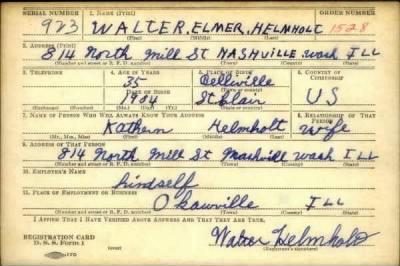 SERIAL NUMBER 1. NAME (Print) ORDER NUMBER
923 WALTER, ELMER, HELMHOLT 1528
2. ADDRESS (Print)
814 North Mill St NASHVILLE Wash ILL
(Number and street or R. F. D. number) (Town) (County) (State)
3. TELEPHONE 4. AGE IN YEARS 5. PLACE OF BIRTH 6. COUNTRY OF CITIZENSHIP
35 Belliville
DATE OF BIRTH
1904 St Clair US
(Exchange) (Number) (Mo.) (Day) (Yr.) (Town or county) (State or country)
7. NAME OF PERSON WHO WILL ALWAYS KNOW YOUR ADDRESS 8. RELATIONSHIP OF THAT PERSON
Kathern Helmholt Wife
(Mr., Mrs., Miss) (First) (Middle) (Last)
9. ADDRESS OF THAT PERSON
814 North Mill St Nashvill Wash ILL
(Number and street or R. F. D. number) (Town) (County) (State)
10. EMPLOYER'S NAME
himself
11. PLACE OF EMPLOYMENT OR BUSINESS
Okawville ILL
(Number and street or R. F. D. number) (Town) (County) (State)
I AFFIRM THAT I HAVE VERIFIED ABOVE ANSWERS AND THAT THEY ARE TRUE.
REGISTRATION CARD
D. S. S. Form 1
Walter Helmholt
(Registrant's signature)